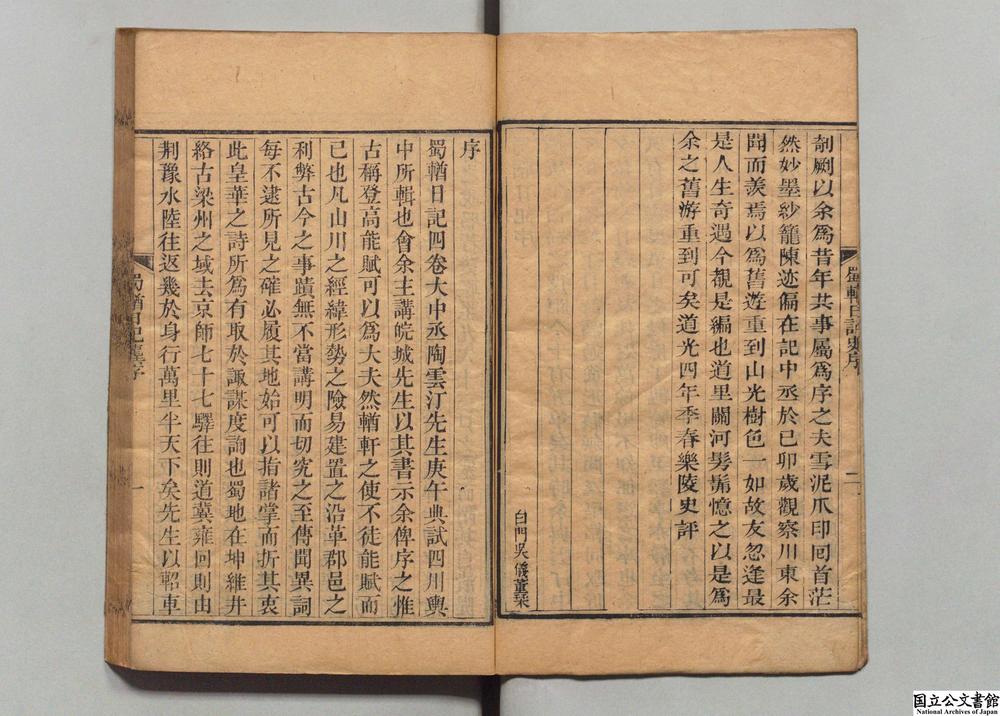 剞劂以余爲昔年共事屬爲序之夫雪泥爪印回首茫
然妙墨紗籠陳迹偏在記中丞於已卯歲觀察川東余
聞而羨焉以爲舊遊重到山光樹色一如故友忽逢最
是人生奇遇今覩是編也道里關河髣髴憶之以是爲
余之舊游重到可矣道光四年季春樂陵史評
白門吳儀董栞
蜀輶日記史序
二
序
蜀輶日記四卷大中丞陶雲汀先生庚午典試四川輿
中所輯也會余主講皖城先生以其書示余俾序之惟
古稱登高能賦可以爲大夫然輶軒之使不徒能賦而
已也凡山川之經緯形勢之險易建置之沿革郡邑之
利弊古今之事蹟無不當講明而切究之至傳聞異詞
每不逮所見之確必履其地始可以指諸掌而折其衷
此皇華之詩所爲有取於諏謀度詢也蜀地在坤維井
絡古梁州之域去京師七十七驛往則道冀雍回則由
荆豫水陸往返幾於身行萬里半天下矣先生以軺車
蜀輶日記龔序
一
国立公文書館
National Archives of Japan